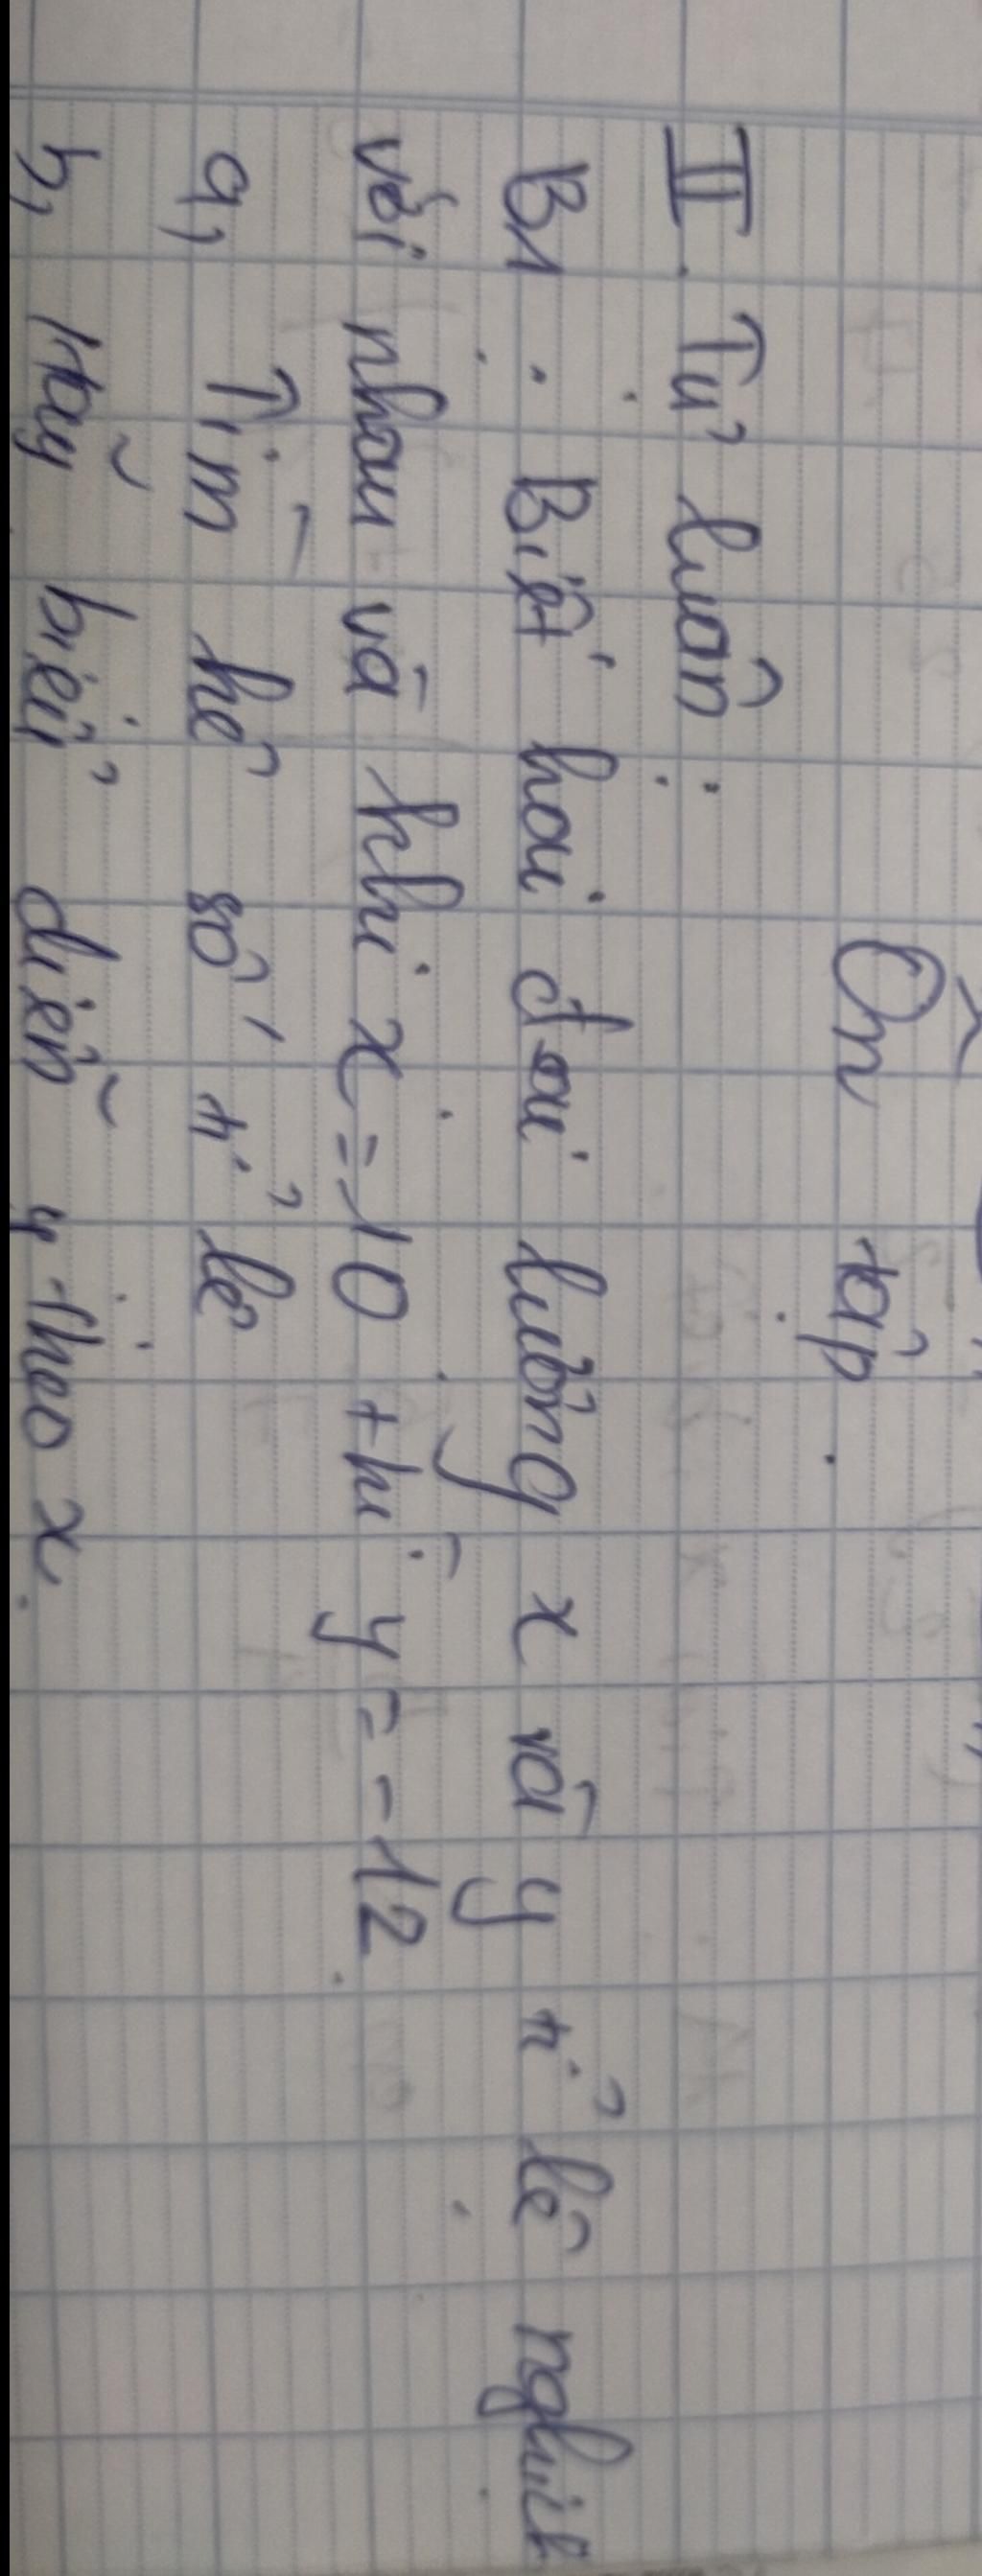 Ôn tập.
II. Tự luận:
B1. Biết hai đại lượng x và y tỉ lệ nghịch
với nhau và khi x=10 thì y=-12
a, Tìm hệ số tỉ lệ
b, Hãy biểu diễn y theo x.